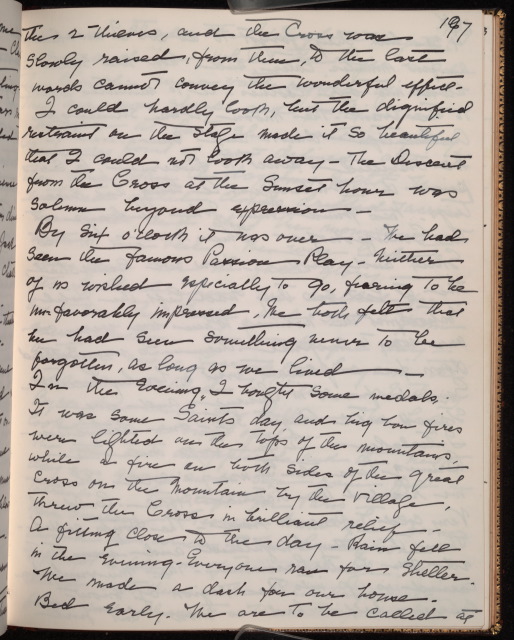 197
the 2 thieves, and the Cross was
slowly raised, from then, to the last
words cannot convey the wonderful effect-
I could hardly look, but the dignified
restraint on the stage made it so beautiful
that I could not look away - The Descent
from the Cross at the Sunset hour was
solemn beyond expression -
By six o'clock it was over - We had
seen the famous Passion Play - Neither
of us wished especially to go, fearing to be
unfavorably impressed, We both felt that
we had seen something never to be
forgotten, as long as we lived -
In the Evening, I bought some medals.
It was some Saints day, and big bon fires
were lighted on the tops of the mountains,
while a fire on both sides of the great
Cross on the Mountain by the Village,
threw the Cross in brilliant relief -
A fitting close to the day - Rain fell
in the evening - Everyone ran for Shelter.
We made a dash for our house.
Bed early. We are to be called at